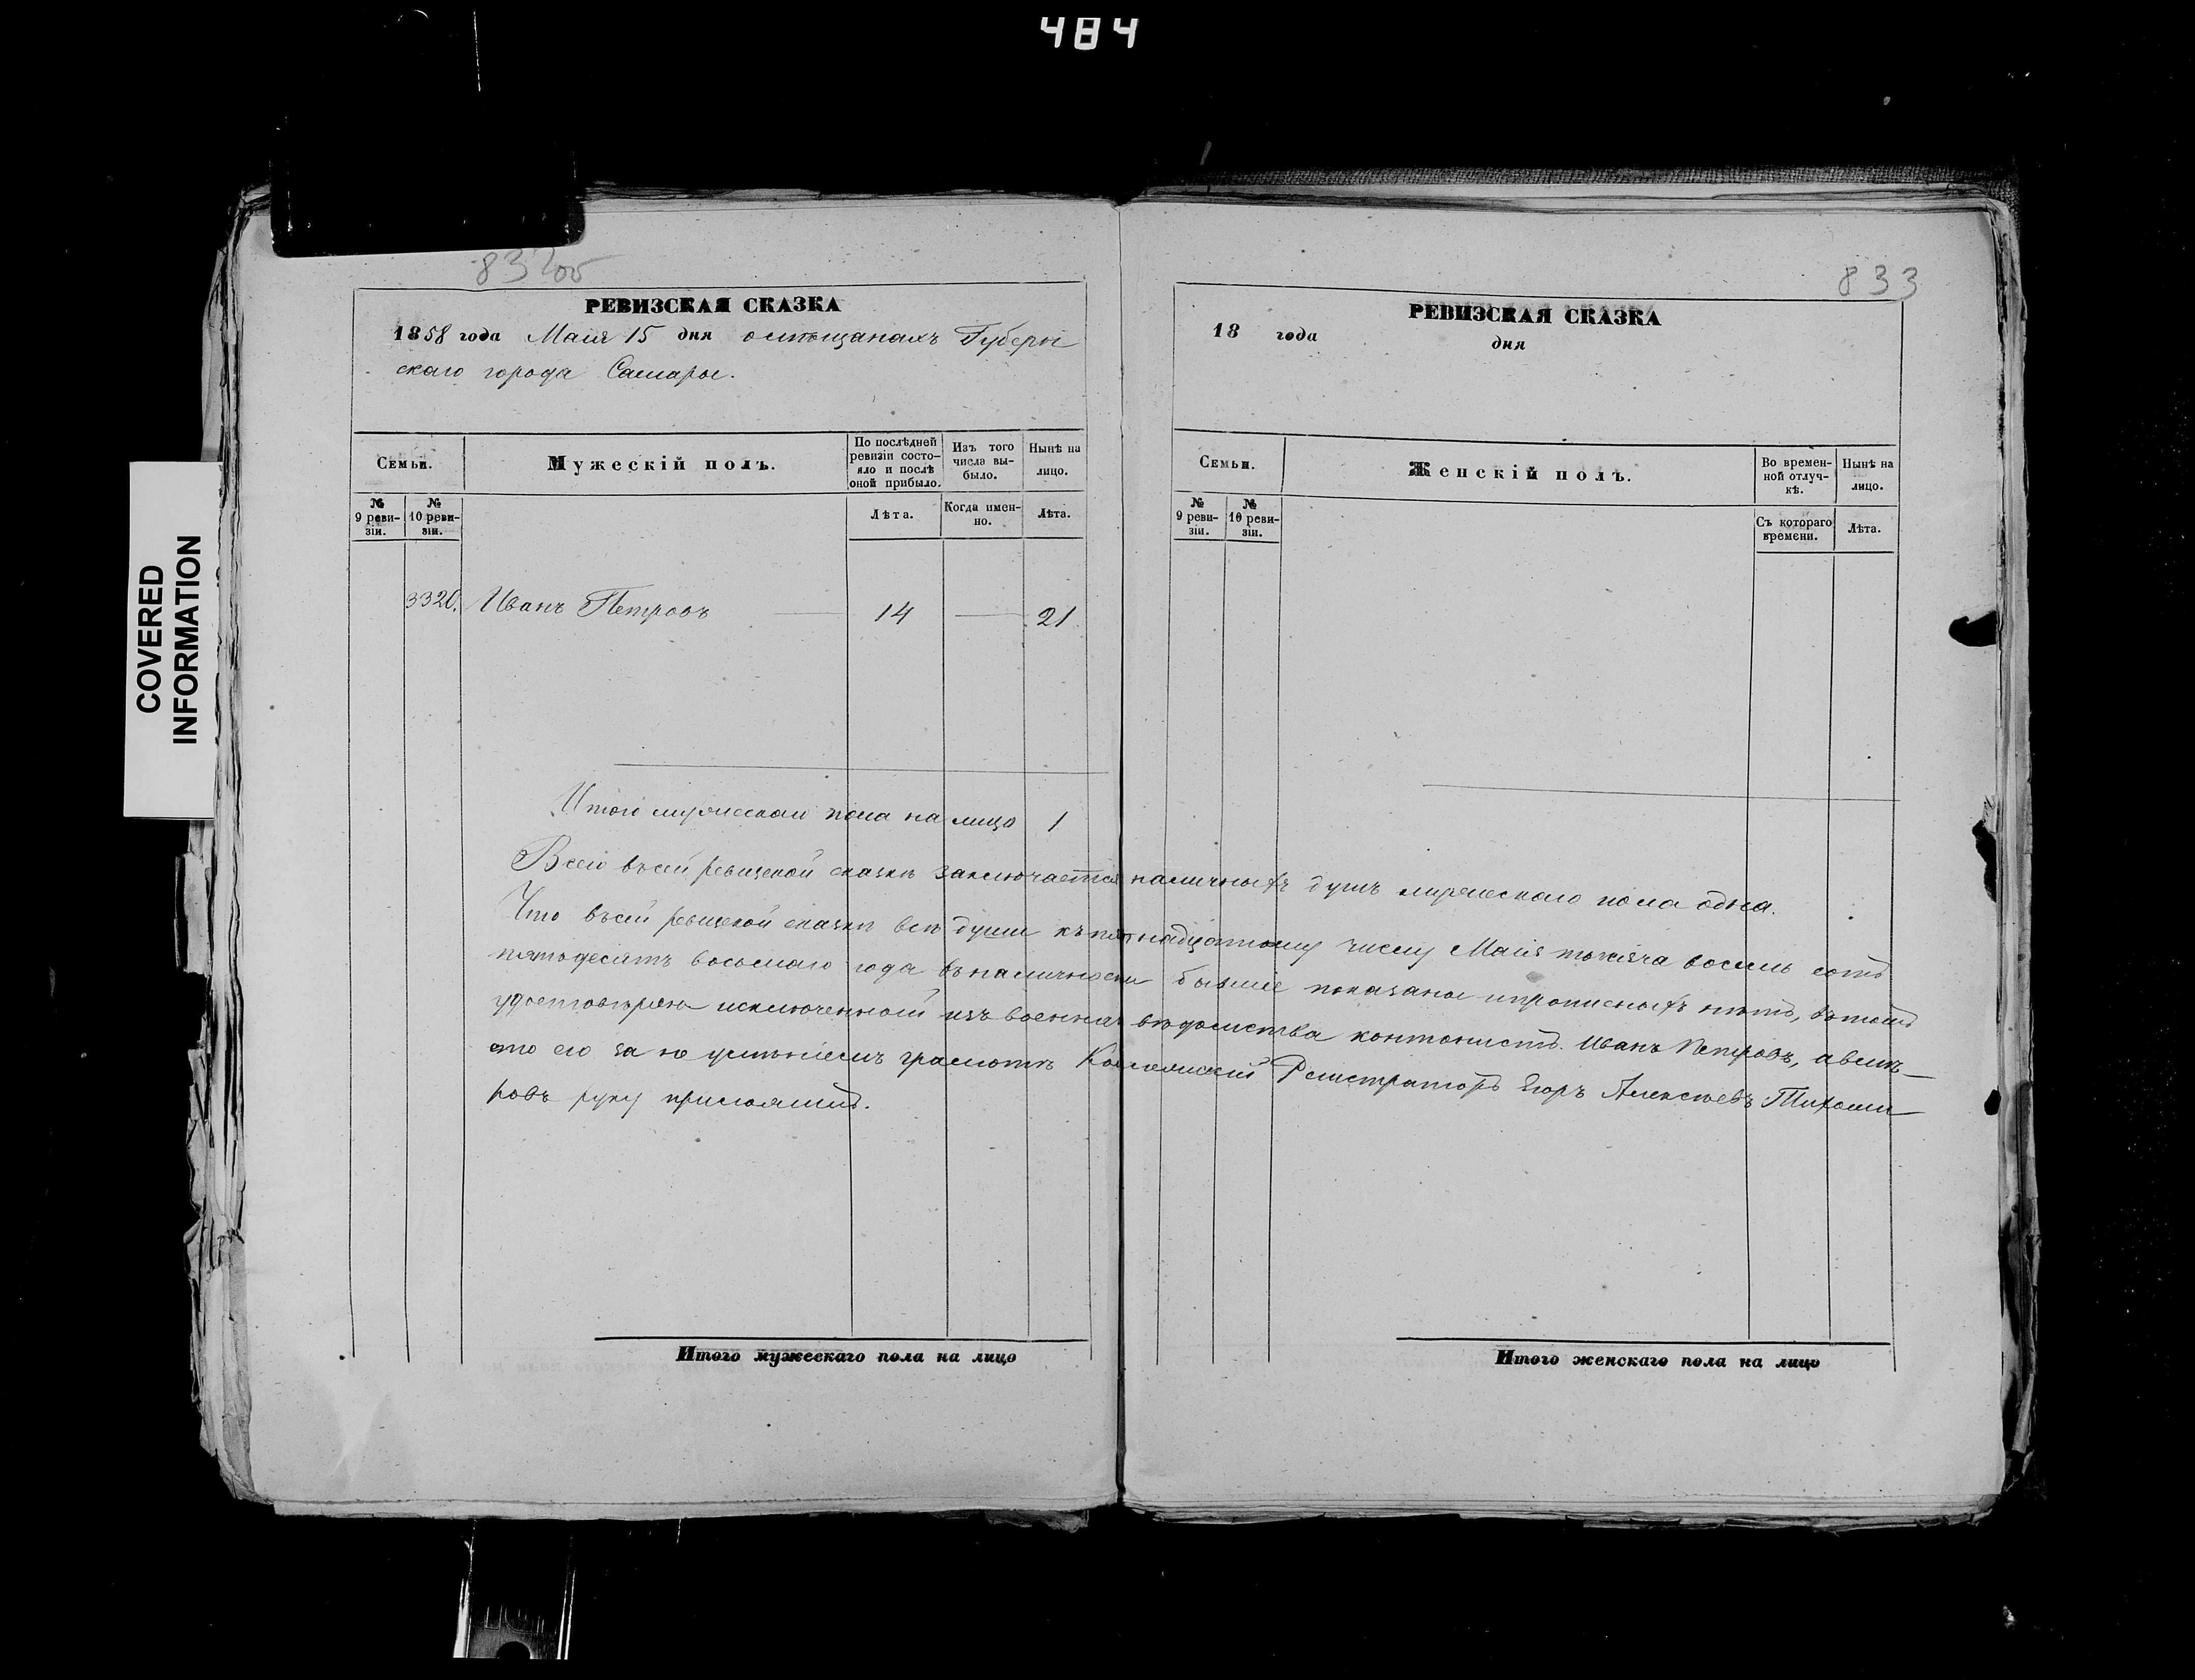 484
COVERED
INFORMATION
832об
РЕВИЗСКАЯ СКАЗКА
1858 года Маія 15 дня о мѣщанахъ Губерн
скаго города Самары.
Семьи.
Мужескій полъ.
По послѣдней
ревизіи состо-
яло и послѣ
оной прибыло.
Изъ того
числа вы-
было.
Нынѣ на
лицо.
№
9 реви-
зіи.
№
10 реви-
зіи.
Лѣта.
Когда имен-
но.
Лѣта.
3320. Иванъ Петровъ 14 — 21
Итого мужескаго пола на лицо 1
833
РЕВИЗСКАЯ СКАЗКА
18 года
дня
Семьи.
Женскій полъ.
Во времен-
ной отлуч-
кѣ.
Нынѣ на
лицо.
№
9 реви-
зіи.
№
10 реви-
зіи.
Съ котораго
времени.
Лѣта.
Всего въ сей ревизской сказкѣ заключается наличныхъ душъ мужескаго пола одна.
Что въ сей ревизской сказкѣ всѣ души къ пятнадцатому числу Маія тысяча восемь сотъ
пятьдесятъ восьмаго года въ наличности бывшіе показаны и прописныхъ нѣтъ, въ томъ
удостовѣряю исключенный изъ военнаго вѣдомства кантонистъ Иванъ Петровъ, а вмѣ-
сто его за не умѣніемъ грамотѣ Коллежскій Регистраторъ Егоръ Алексѣевъ Тихоми
ровъ руку приложилъ.
Итого мужескаго пола на лицо
Итого женскаго пола на лицо